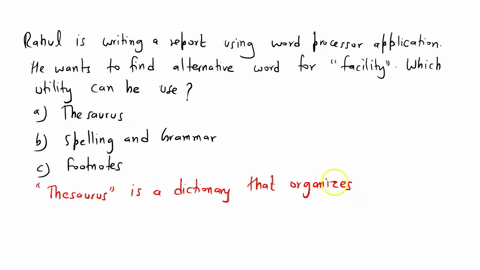 Rahul is writing a report using word processor application.
He wants to find alternative word for "facility". Which
utility can he use?
a) Thesaurus
b) Spelling and Grammar
c) Footnotes
"Thesaurus" is a dictionary that organizes